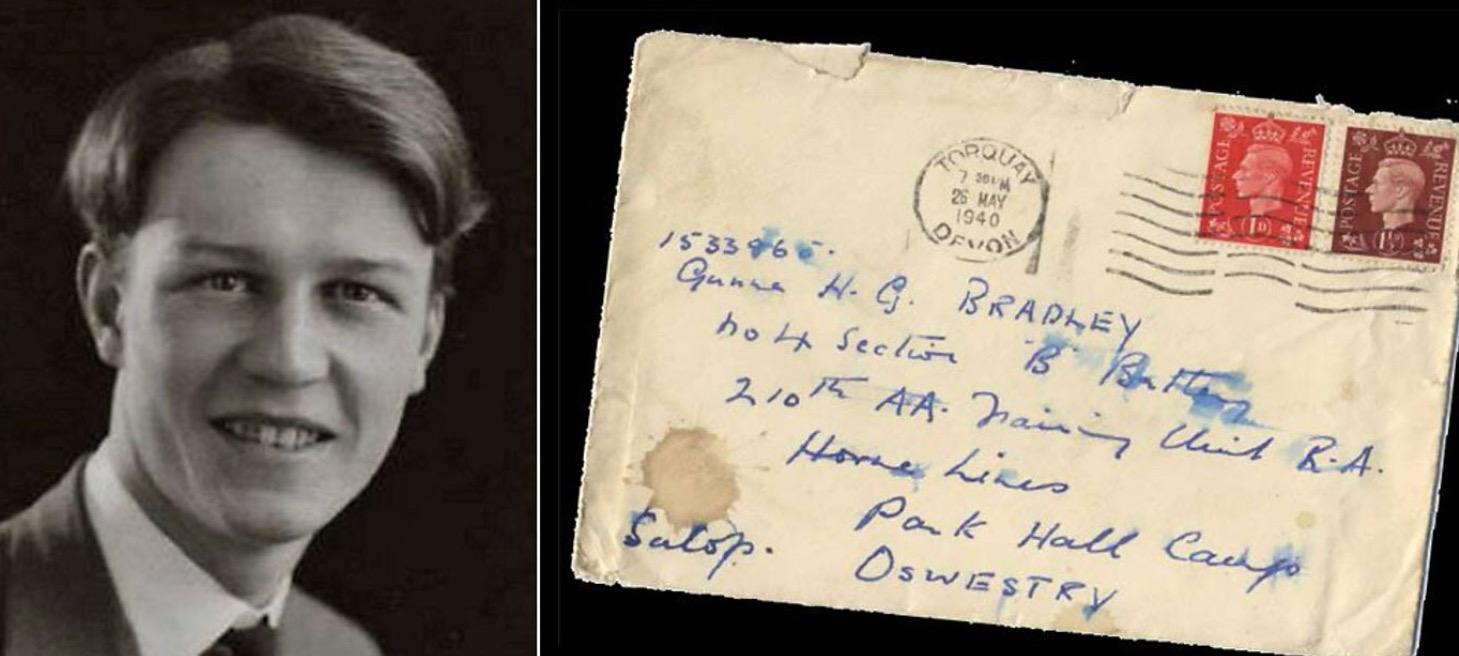 TORQUAY
7 30 PM
26 MAY
1940
DEVON
POSTAGE REVENUE
1D
POSTAGE REVENUE
1½D
1533965.
Gunner H. G. BRADLEY
No 4 Section "B" Battery
210th AA. Training Unit R.A.
Lines
Park Hall Camp
OSWESTRY
Salop.